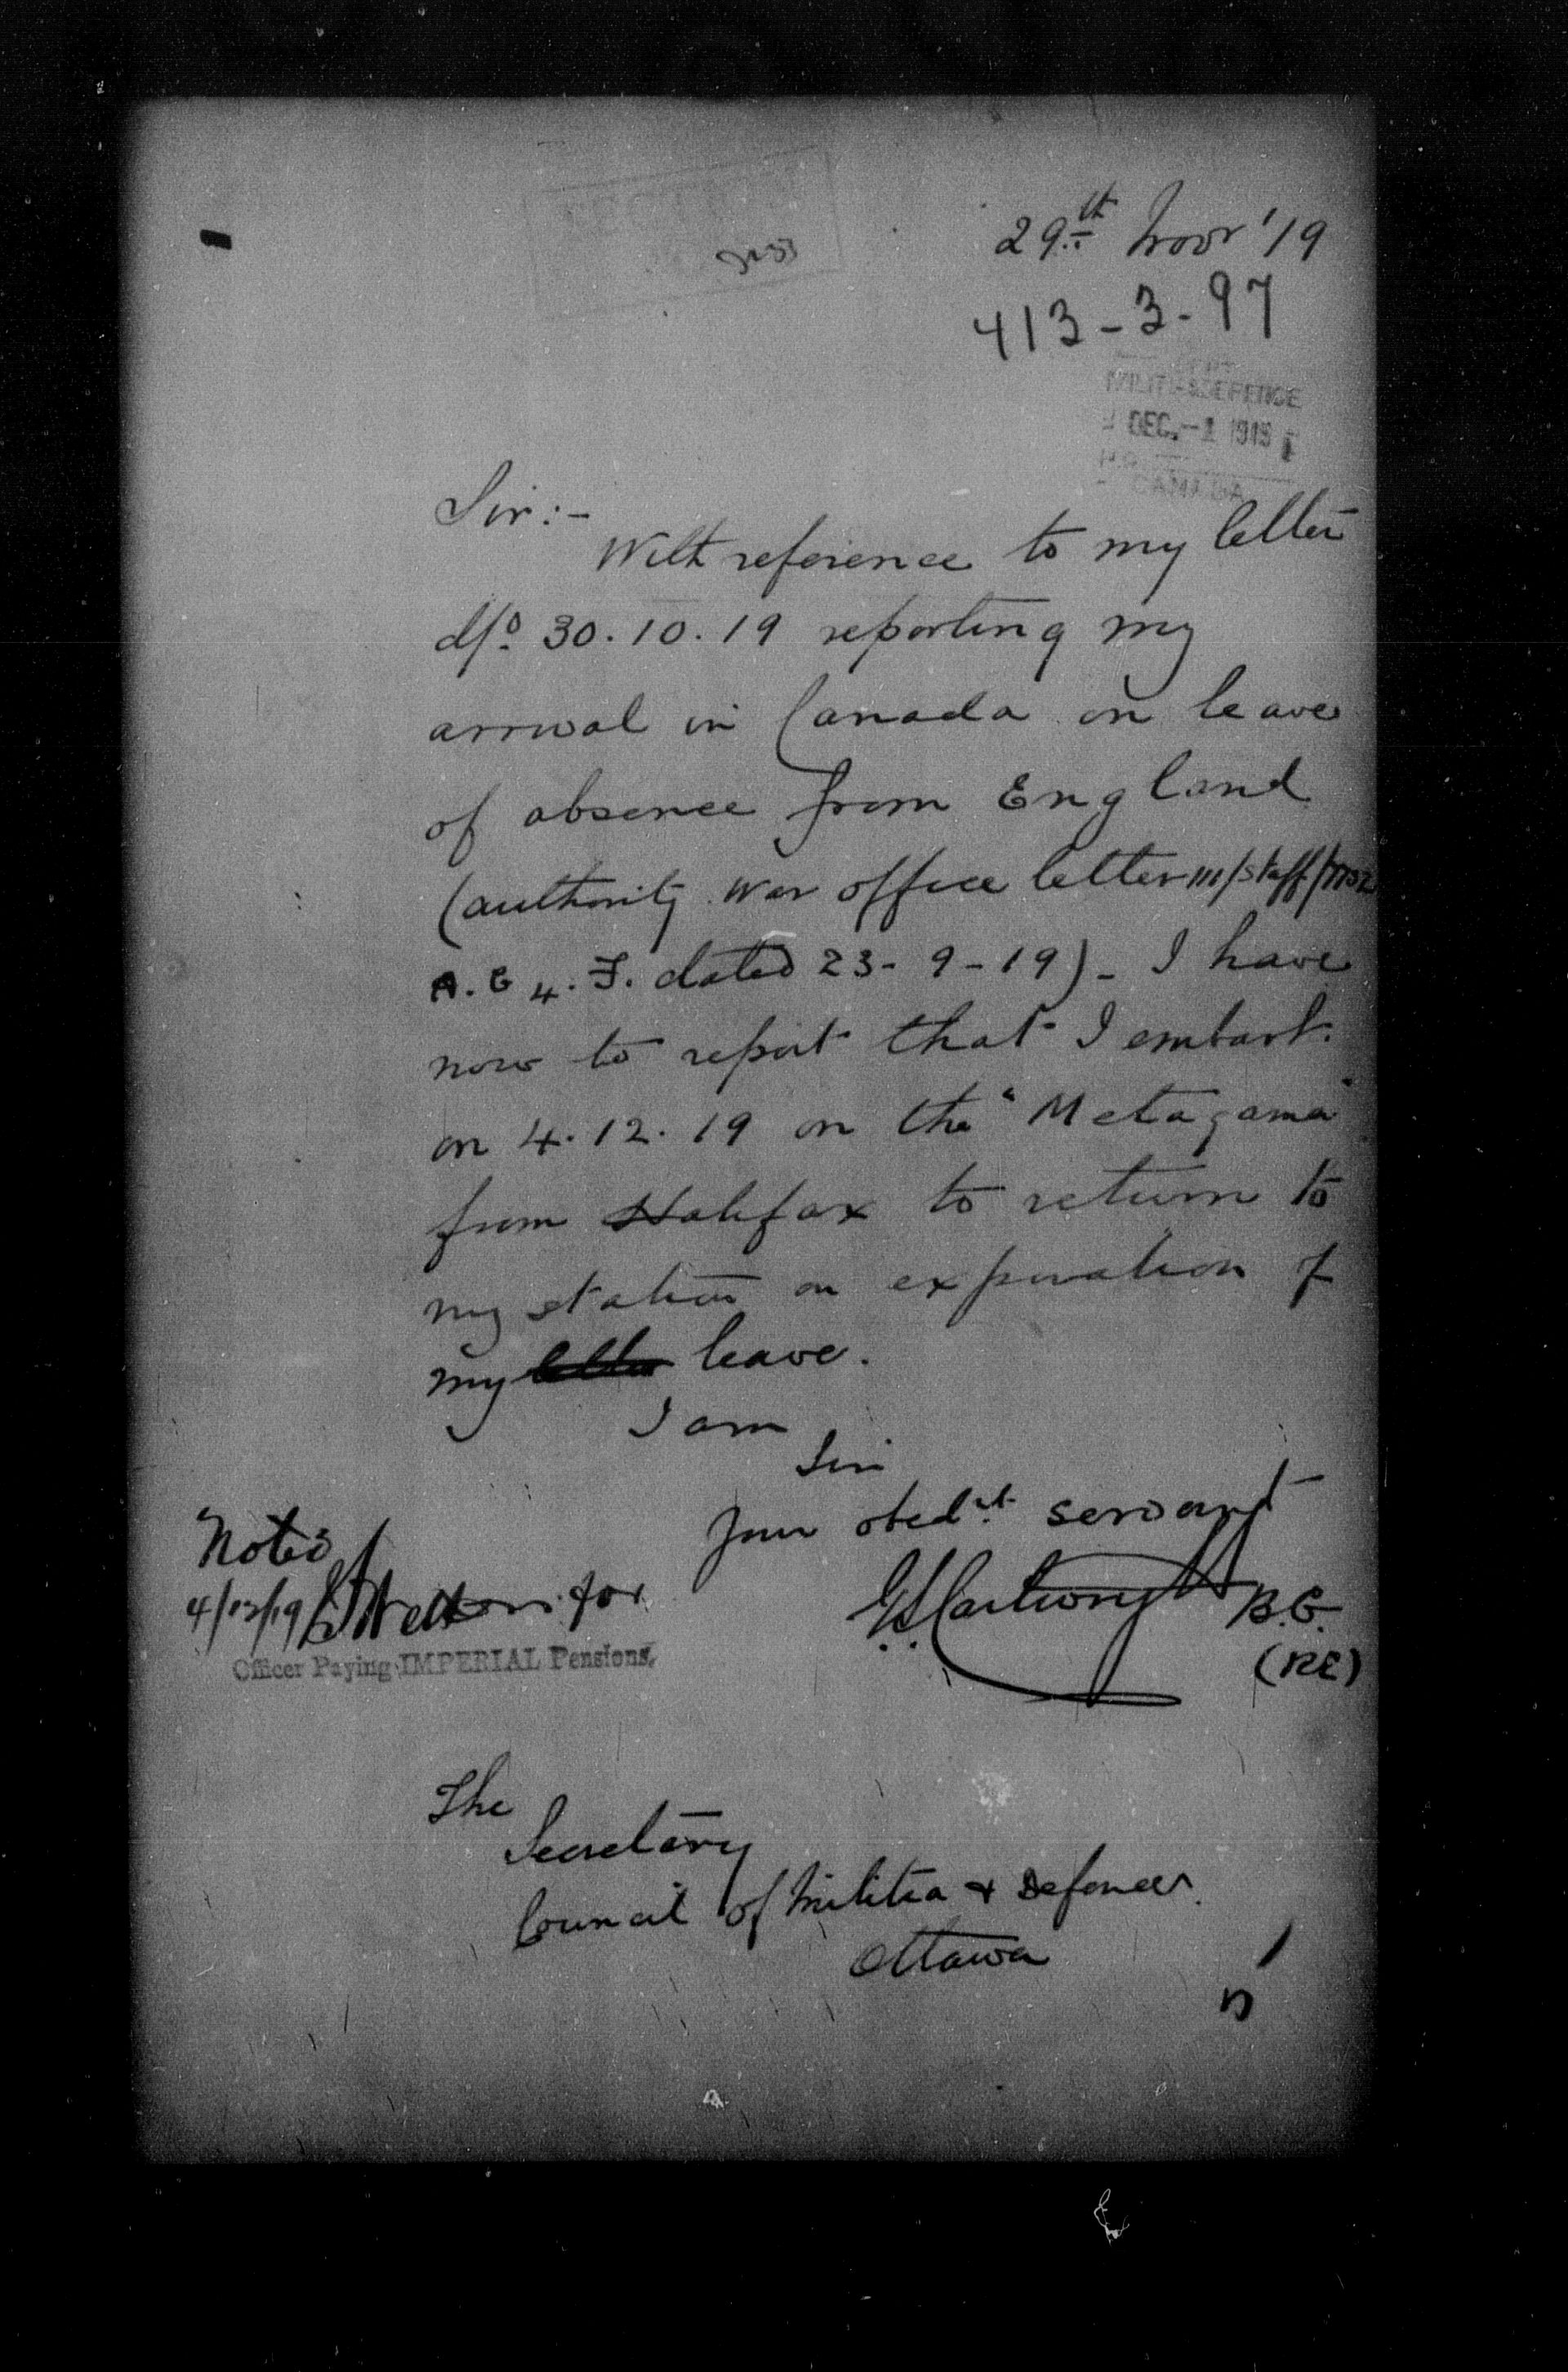 29th Novr '19
413-3-97
MILITIA & DEFENCE
DEC -1 1919
H.Q.
CANADA
Sir:-
With reference to my letter
d/o 30.10.19 reporting my
arrival in Canada on leave
of absence from England
(authority War Office letter 111/Staff/
A.G 4. F. dated 23-9-19) - I have
now to report that I embark
on 4.12.19 on the "Metagama"
from Halifax to return to
my station on expiration of
my letter leave.
I am
Sir
Your obedt servant
Cartwright B.G.
(RE)
Noted
4/12/19 for
Officer Paying IMPERIAL Pensions.
The
Secretary
Council of Militia & Defence
Ottawa